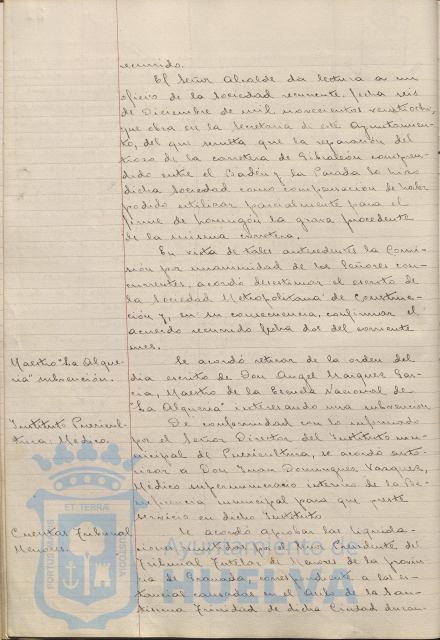 recurrido.
El Señor Alcalde da lectura a un
oficio de la Sociedad recurrente, fecha seis
de Diciembre de mil novecientos veintiocho,
que obra en la Secretaria de este Ayuntamien-
to, del que resulta que la reparación del
trozo de la carretera de Gibraleón compren-
dido entre el Badén y la Parada lo hizo
dicha Sociedad como compensacion de haber
podido utilizar parcialmente para el
firme de hormigón la grava procedente
de la misma carretera.
En vista de tales antecedentes la Comi-
sión por unanimidad de los Señores con-
currentes, acordó desestimar el escrito de
la Sociedad Metropolitana de Construc-
ción y, en su consecuencia, confirmar el
acuerdo recurrido fecha dos del corriente
mes.
Maestro "La Alque-
ria" subvención.
Se acordó retirar de la orden del
dia escrito de Don Angel Marquez Gar-
cia, Maestro de la Escuela Nacional de
"La Alqueria" interesando una subvencion
Instituto Puericul-
tura: Medico.
De conformidad con lo informado
por el Señor Director del Instituto mu-
nicipal de Puericultura, se acordó auto-
rizar a Don Juan Dominguez Vazquez,
Médico supernumerario interino de la Be-
neficencia municipal para que preste
servicio en dicho Instituto
Cuentas Tribunal
Menores.
Se acordó aprobar las liquida-
ciones por el Presidente del
Tribunal Tutelar de Menores de la provin-
cia de Granada, correspondiente a las es-
tancias causadas en el Asilo de la San-
tisima Trinidad de dicha Ciudad duran-
PORTUS MARIS
ET TERRÆ
CUSTODIA
Ayuntamiento de
HUELVA